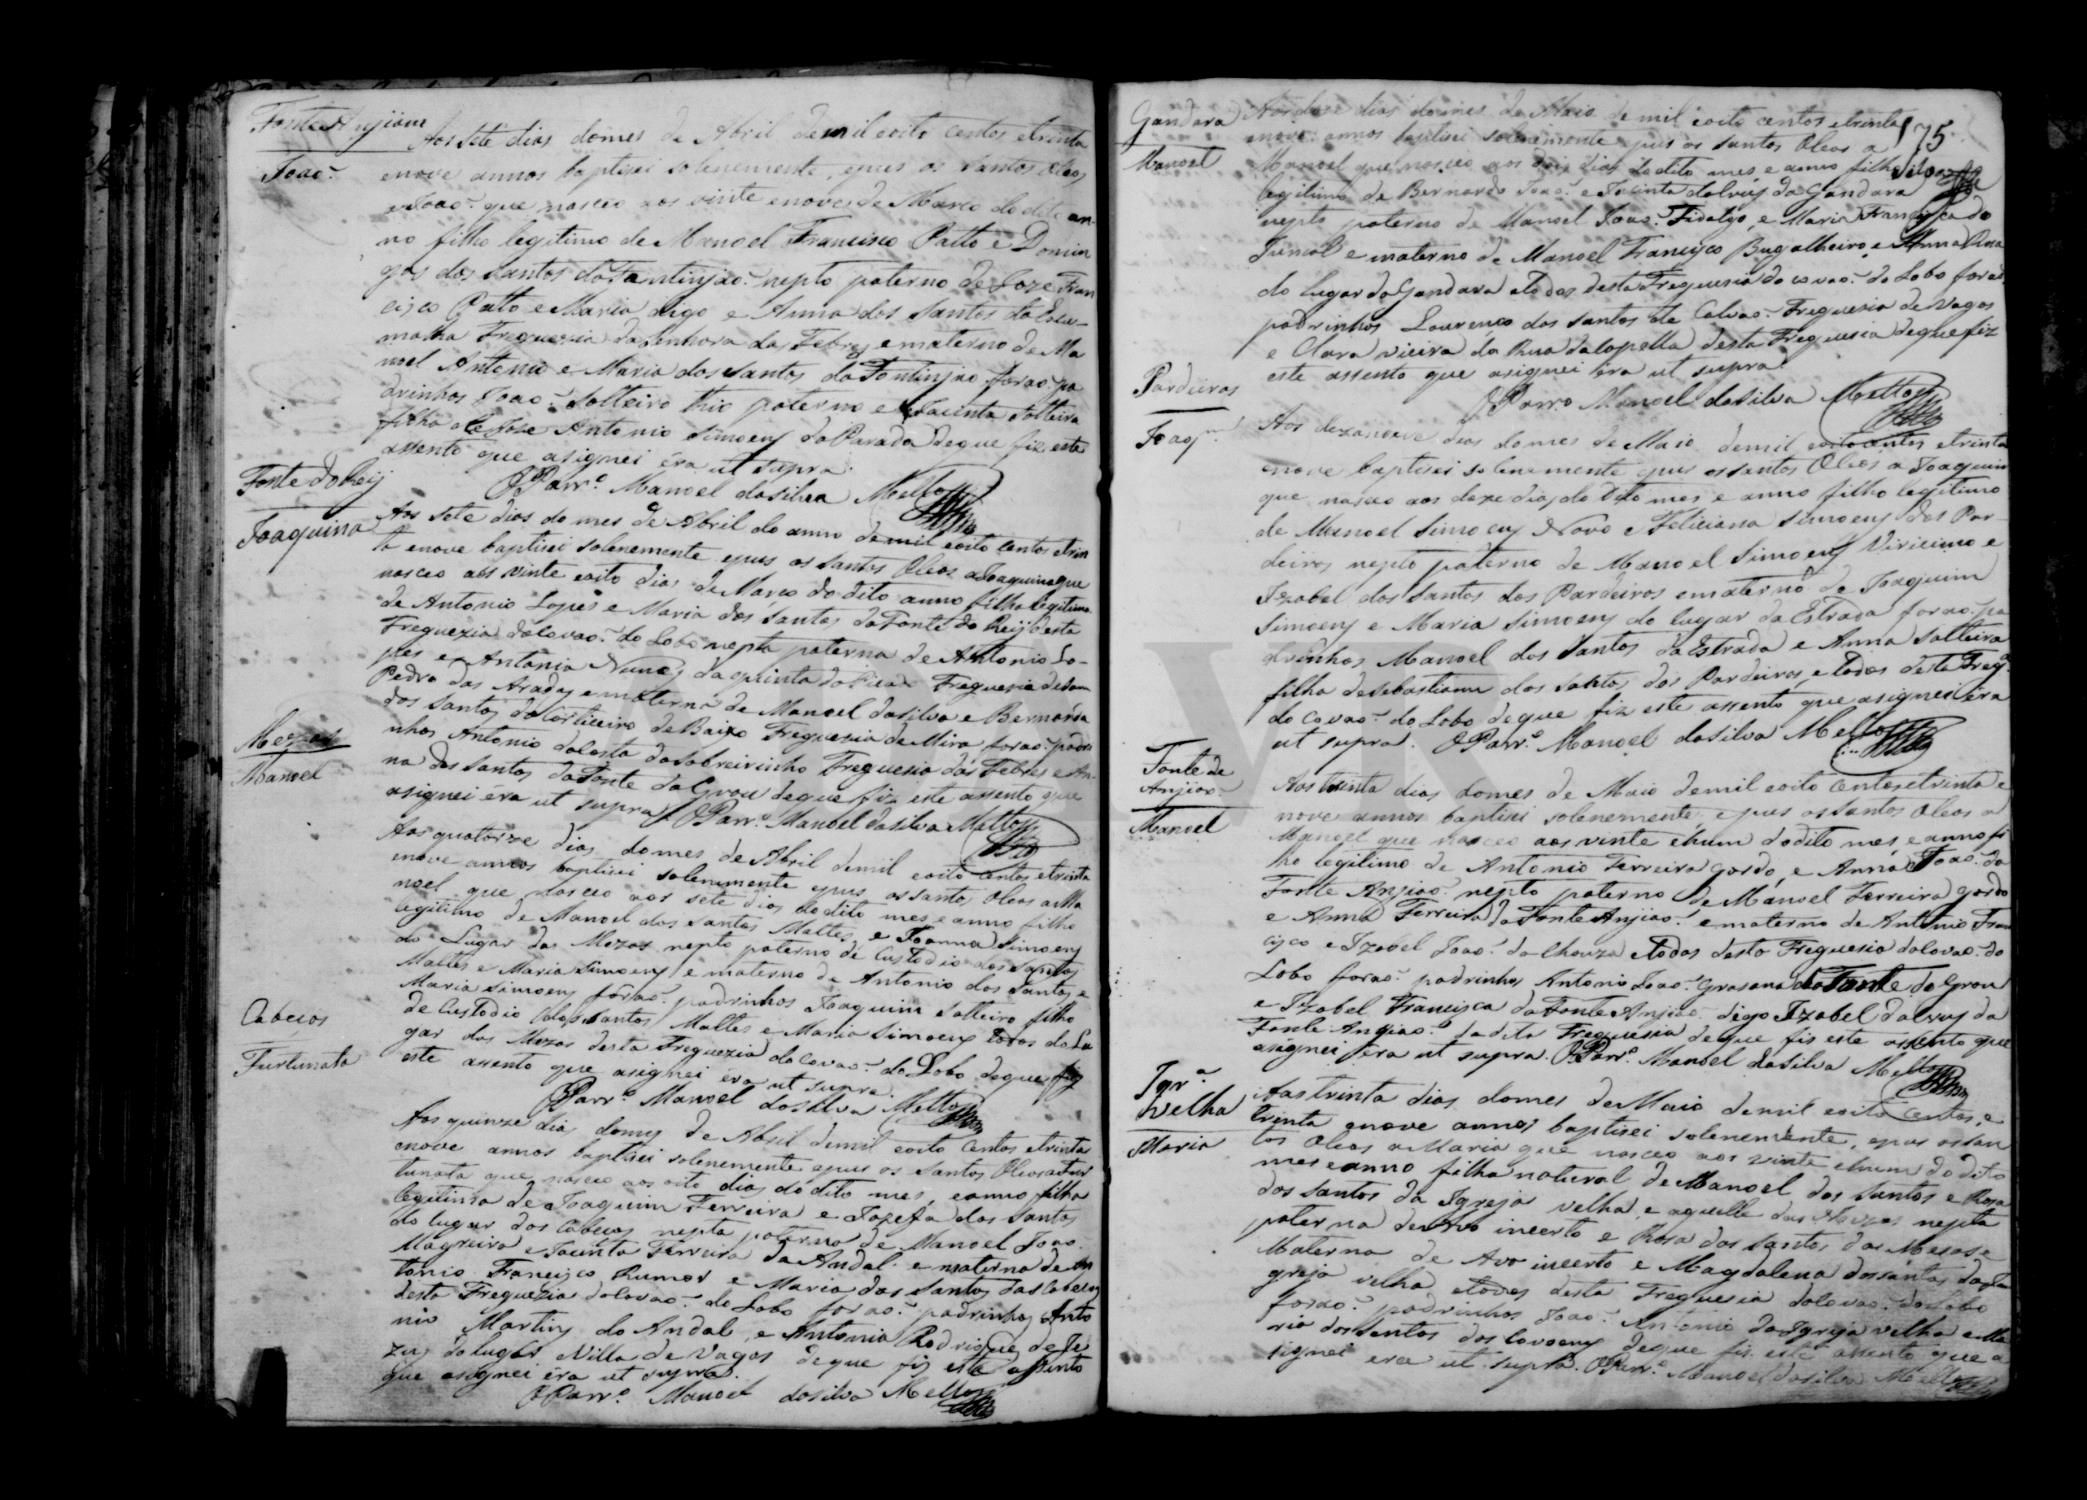 Fonte Anjiam
João
Aos sete dias do mes de Abril de mil e oito centos e trinta
e nove annos baptisei solenemente, e pus os santos oleos
a João que nasceo aos vinte e nove de Março do dito an-
no filho legitimo de Manoel Francisco Patto e Domin
gas dos santos da Fontinjão nepto paterno de Joze Fran
cisco Patto e Maria digo e Anna dos santos da
Freguezia da Senhora das Febres e materno de Ma
noel Antonio e Maria dos santos da Fontinjão forão pa
drinhos João Solteiro thio paterno e Jacinta solteira
filha de Joze Antonio Simoens da Parada de que fiz este
assento que asignei éra ut supra.
O Parr.º Manoel da Silva Mello
Fonte do Reij
Joaquina
Aos sete dias do mes de Abril do anno de mil e oito centos e trin
ta e nove baptisei solenemente e pus os santos Oleos a Joaquina que
nasceo aos vinte e oito dias de Março do dito anno filha legitima
de Antonio Lopes e Maria dos santos da Fonte do Reij desta
Freguezia do Covão do Lobo nepta paterna de Antonio Lo-
pes e Antonia Nunes da quinta do Freguezia de sam
Pedro das Aradas e materna de Manoel da silva e Bernarda
dos santos do Corticeiro de Baixo Freguezia de Mira forão padri
nhos Antonio da Costa do Sobreirinho Freguezia das Febres e An-
na dos santos da Fonte do Grou de que fiz este assento que
asignei éra ut supra O Parr.º Manoel da silva Mello
Mezas
Manoel
Aos quatorze dias do mes de Abril de mil e oito centos e trinta
e nove annos baptisei solenemente e pus os santos Oleos a Ma
noel que nasceo aos sete dias do dito mes e anno filho
legitimo de Manoel dos santos Maltes, e Joanna Simoens
do Lugar das Mezas nepto paterno de Custodio dos santos
Maltes e Maria Simoens e materno de Antonio dos santos e
Maria Simoens forão padrinhos Joaquim solteiro filho
de Custodio dos santos Maltes e Maria Simoens todos do Lu
gar das Mezas desta Freguezia do Covão do Lobo de que fiz
este assento que asignei éra ut supra.
O Parr.º Manoel da silva Mello
Cabecos
Furtunata
Aos quinze dias do mes de Abril de mil e oito centos e trinta
e nove annos baptisei solenemente e pus os santos Oleos a Fur
tunata que nasceo aos oito dias do dito mes, e anno filha
legitima de Joaquim Ferreira e Jozefa dos santos
do lugar dos Cabecos nepta paterna de Manoel João
Magreiro e Jacinta Ferreira da Andal e materna de An
tonio Francisco Rumor e Maria dos santos dos Cabecos
desta Freguezia do Covão do Lobo forão padrinhos Anto
nio Martins do Andal, e Antonia Rodrigues de Je
zus do lugar e Villa de Vagos de que fiz este assento
que asignei éra ut supra.
O Parr.º Manoel da silva Mello
175
Gandara
Manoel
Aos doze dias do mes de Maio de mil e oito centos e trinta
e nove annos baptisei solenemente e pus os santos Oleos a
Manoel que nasceo aos dois dias do dito mes, e anno filho
legitimo de Bernardo João e Jacinta dalvis da Gandara
nepto paterno de Manoel João Fidalgo, e Maria Francisca do
Juncal e materno de Manoel Francisco Bugalheiro, e Anna Roza
do lugar da Gandara e todos desta Freguezia do Covão do Lobo forão
padrinhos Lourenco dos santos de Calvão Freguezia de Vagos
e Clara vieira da Rua da Capella desta Freguezia de que fiz
este assento que asignei éra ut supra
O Parro Manoel da silva Mello
Pardeiros
Joaqm
Aos dezanove dias do mes de Maio de mil e oito centos e trinta
e nove baptisei solenemente e pus os santos Oleos a Joaquim
que nasceo aos doze dias do dito mes e anno filho legitimo
de Manoel Simoens Novo e Feliciana Simoens dos Par-
deiros nepto paterno de Manoel Simoens Viricimo e
Izabel dos Santos dos Pardeiros e materno de Joaquim
Simoens e Maria Simoens do lugar da Estrada forão pa
drinhos Manoel dos Santos da Estrada e Anna solteira
filha de Sebastiam dos santos dos Pardeiros e todos desta Freg.ª
do Covão do Lobo de que fiz este assento que asignei éra
ut supra. O Parr.º Manoel da silva Mello
Fonte de
Anjião
Manoel
Aos trinta dias do mes de Maio de mil e oito centos e trinta e
nove annos baptisei solenemente e pus os santos Oleos a
Manoel que nasceo aos vinte e hum do dito mes, e anno fi
lho legitimo de Antonio Ferreira gordo, e Anna João da
Fonte Anjião nepto paterno de Manoel Ferreira gordo
e Anna Ferreira da Fonte Anjião e materno de Antonio Fran
cisco e Izabel João da Chouza e todos desta Freguezia do Covão do
Lobo forão padrinhos Antonio João da Fonte do Grou
e Izabel Francisca da Fonte Anjião digo Izabel dalvis da
Fonte Anjião da dita Freguezia de que fiz este assento que
asignei éra ut supra. O Parr.º Manoel da silva Mello
Igr.ª
Velha
Maria
Aos trinta dias do mes de Maio de mil e oito centos, e
trinta e nove annos baptisei solenemente, e pus os san
tos Oleos a Maria que nasceo aos vinte e hum do dito
mes e anno filha natural de Manoel dos santos e Roza
dos santos da Igreja velha, e aquelle das Mezas nepta
paterna de Avo incerto e Roza dos santos das Mezas e
Materna de Avo incerto e Magdalena dos santos da I
greja velha e todos desta Freguezia do Covão do Lobo
forão padrinhos João Antonio da Igreja velha e Ma
ria dos santos dos Covoens de que fiz este assento que a
signei éra ut supra. O Parr.º Manoel da silva Mello